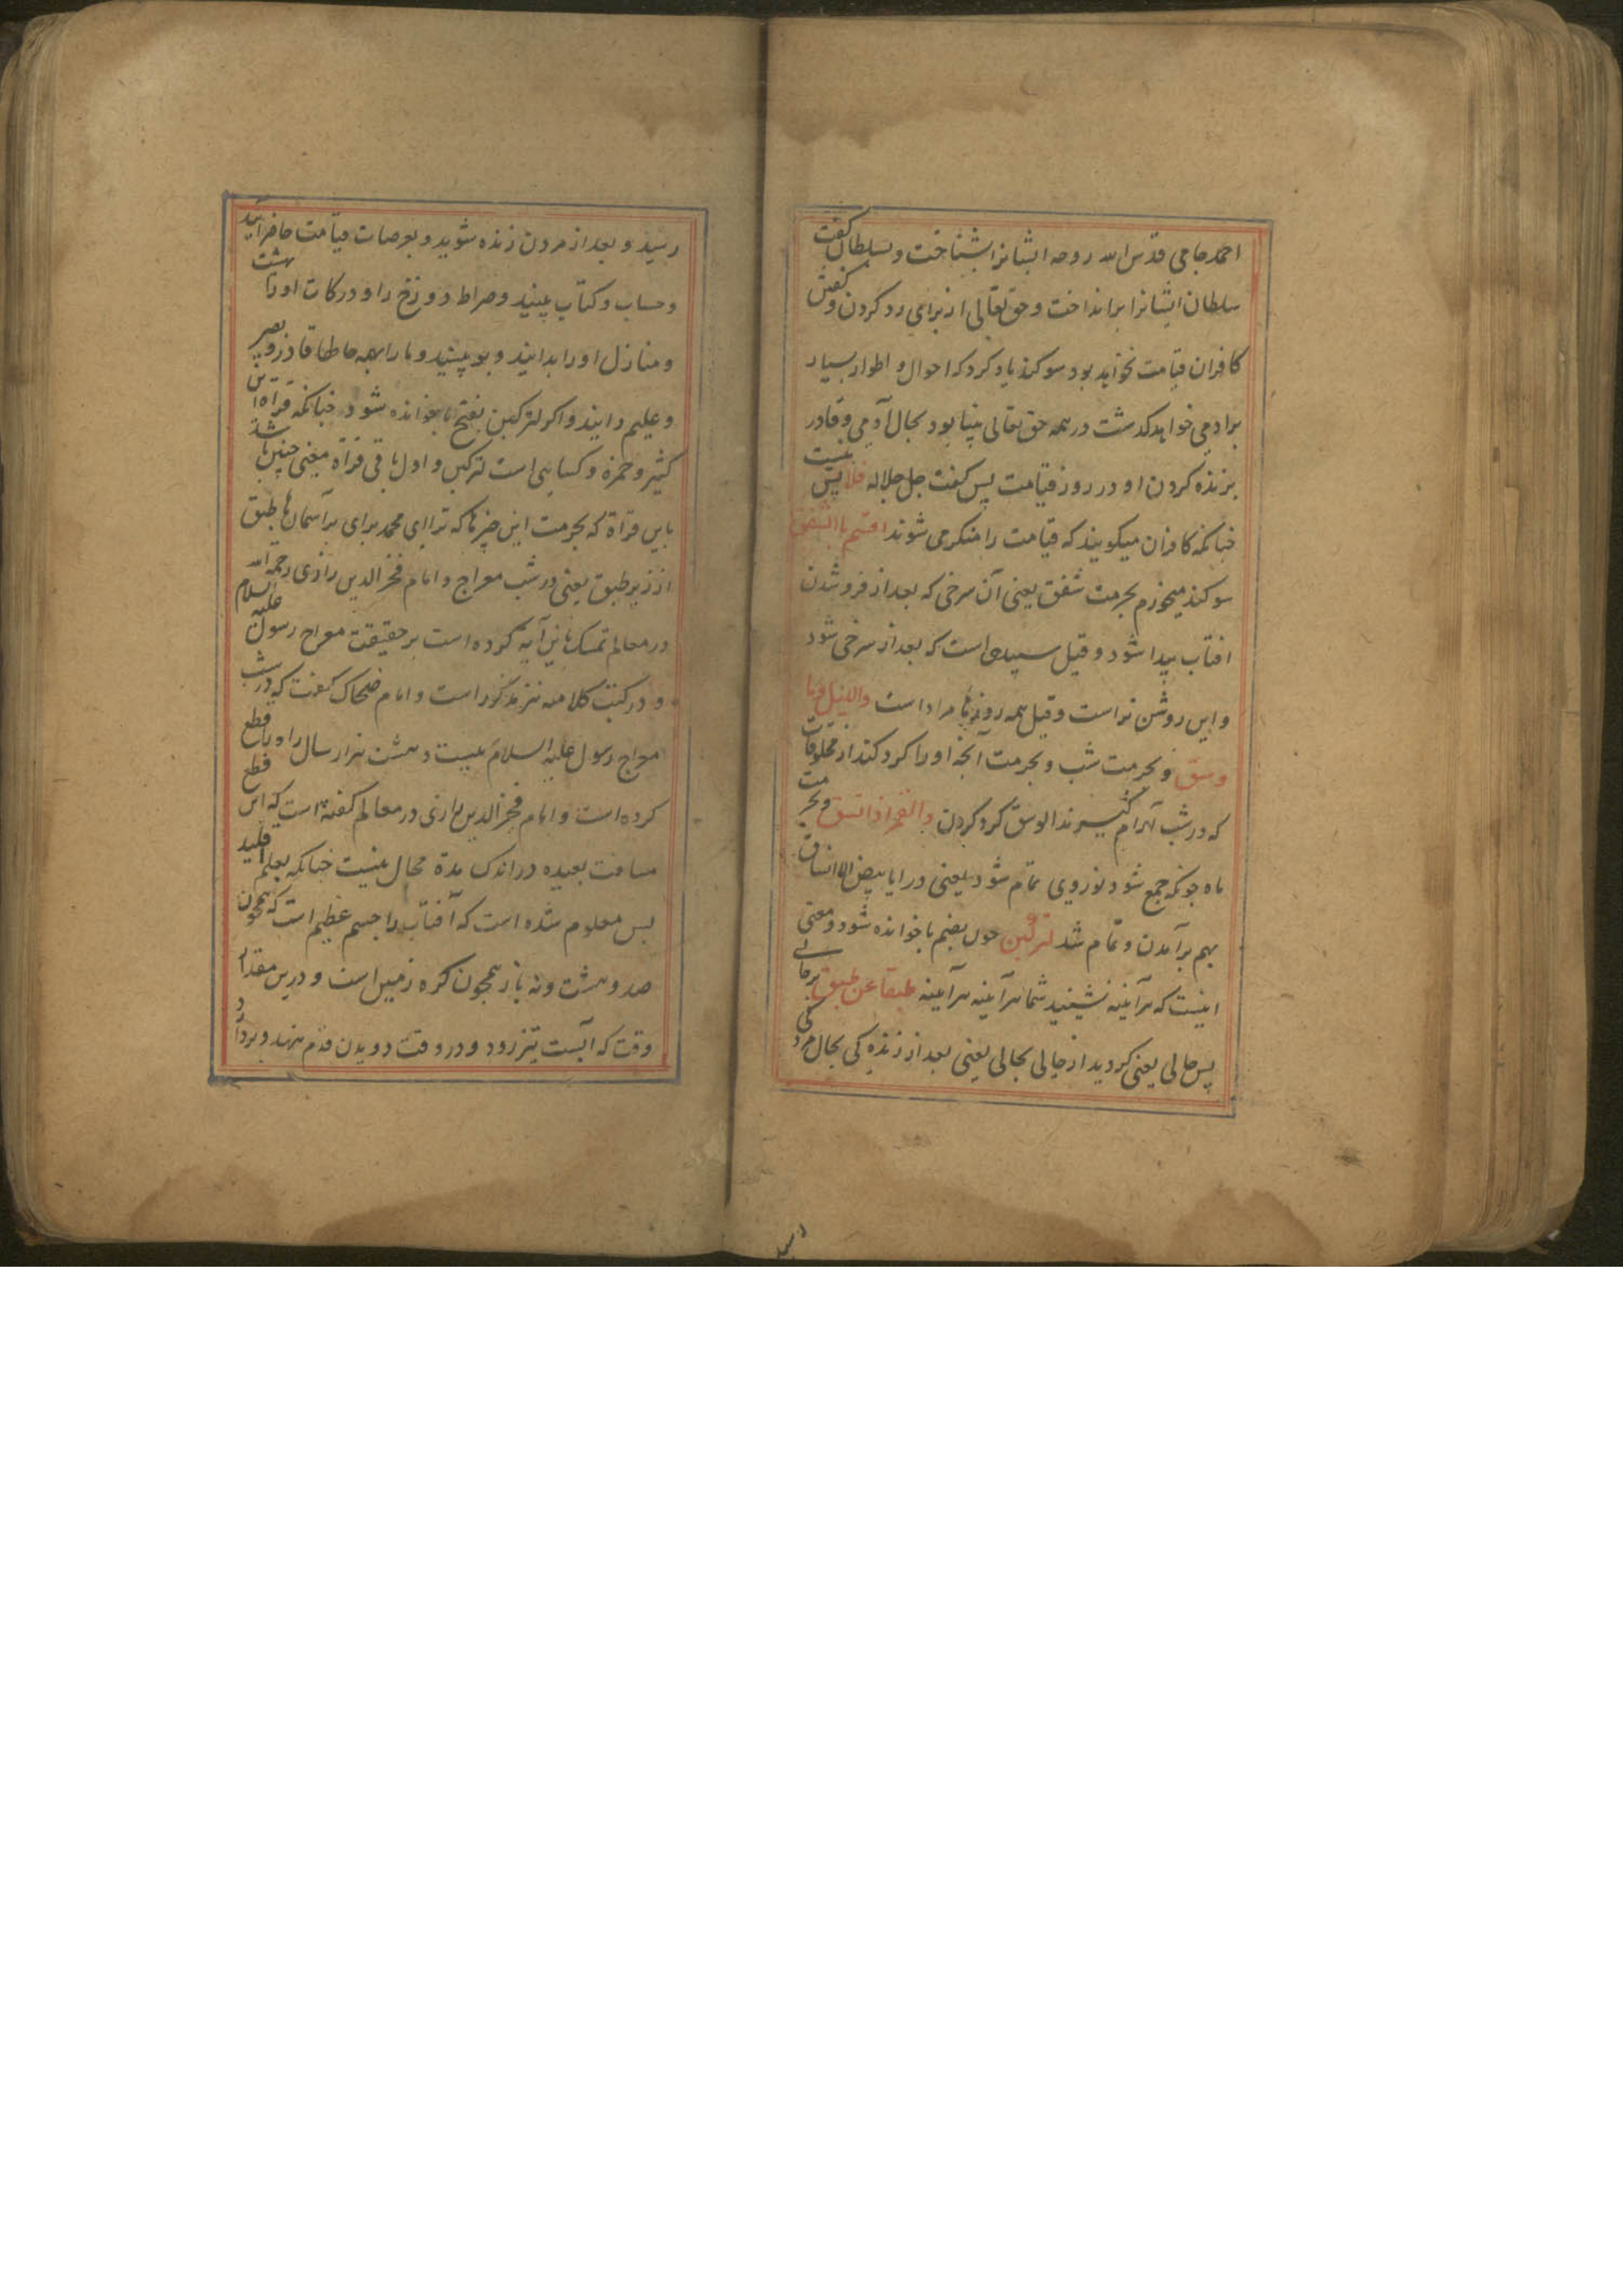 احمد جامی قدس الله روحه ایشانرا بشناخت و بسلطان کفت
سلطان ایشانرا برانداخت و حق تعالی از برای رد کردن و کفتن
کافران قیامت نخواهد بود سوکند یاد کرد که احوال و اطوار بسیار
برادمی خواهد کذشت در همه حق تعالی بینا بود بحال آدمی و قادر
بزنده کردن او در روز قیامت پس کفت جل جلاله فلا پس نیست
جنانکه کافران میکویند که قیامت را منکر می شوند اقسم باالشفق
سوکند میخورم بحرمت شفق یعنی آن سرخی که بعد از فرو شدن
افتاب پیدا شود و قیل سپیدی است که بعد از سرخی شود
و این روشن تر است و قیل همه روزها مراد است واللیل وما
وسق و بحرمت شب و بحرمت آنجه او را کرد کند از مخلوقات
که در شب آرام کیرند الوسق کرد کردن والقمر اذا اتسق و بحرمت
ماه جونکه جمع شود نور وی تمام شود یعنی در ایا بیض الاتساق
بهم برآمدن و تمام شد لترکبن جون بضم با خوانده شود و معنی
اینست که هرآینه نشینید شما هرآینه هرآینه طبقا عن طبق برحالی
پس حالی یعنی کردید از حالی بحالی یعنی بعد از زنده کی بحال مرد کی
رسید
رسید و بعد از مردن زنده شوید و بعرصات قیامت حاضر آیید
و حساب و کتاب بینید و صراط دوزخ را و درکات او را بهشت
و منازل او را بدانید و بو بینید و ما را بهمه حالها قادر و بصیر
و علیم دانید و اکر لترکبن بفتح با خوانده شود جنانکه قراة ابن
کثیر و حمزه و کسایی است لترکبن و اول باقی قراة معنی جنین باشد
باین قراة که بحرمت این جیزها که ترا ای محمد برای برآسمان ها طبق
از زیر طبق یعنی در شب معراج و امام فخر الدین رازی رحمه الله
در معالم تمسک باین آیه کرده است بر حقیقت معراج رسول علیه السلام
و در کتب کلامیه نیز مذکور است و امام ضحاک کفت که در شب
معراج رسول علیه السلام بیست و هشت هزار سال راه را قطع
کرده است و امام فخر الدین رازی در معالم کفته است که این قطع
مسافت بعیده در اندک مدة محال نیست جنانکه بعلم اقلید
بس معلوم شده است که آفتاب را جسم عظیم است که همجون
صد و هشت و نه باز همجون کره زمین است و درین مقدار
وقت که آبست تیز رود و در وقت دویدن قدم نهد و بردارد